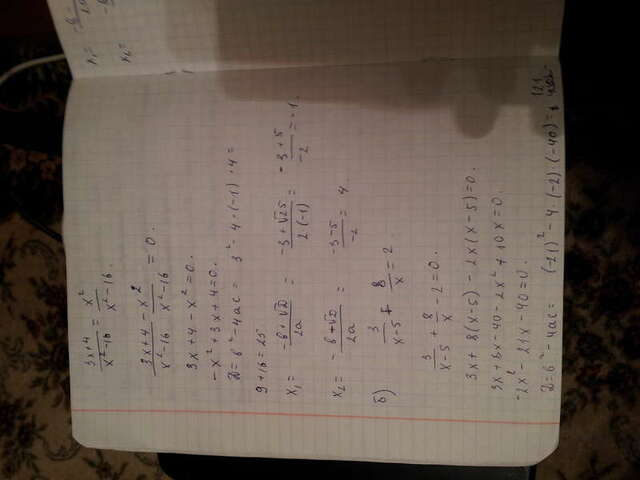 3x+4/x²-16 = x²/x²-16
3x+4-x²/x²-16 x²-16 = 0.
3x+4-x²=0.
-x²+3x+4=0.
D=b²-4ac= 3²-4·(-1)·4=
9+16=25
x₁= -b+√D/2a = -3+√25/2(-1) = -3+5/-2 = -1.
x₂= -b+√D/2a = -3-5/-2 = 4.
б) 3/x-5 + 8/x = 2.
3/x-5 + 8/x - 2=0.
3x+8(x-5)-2x(x-5)=0.
3x+8x-40-2x²+10x=0.
-2x²-21x-40=0.
D=b²-4ac= (-21)²-4·(-2)·(-40)=
x₁=
x₂=